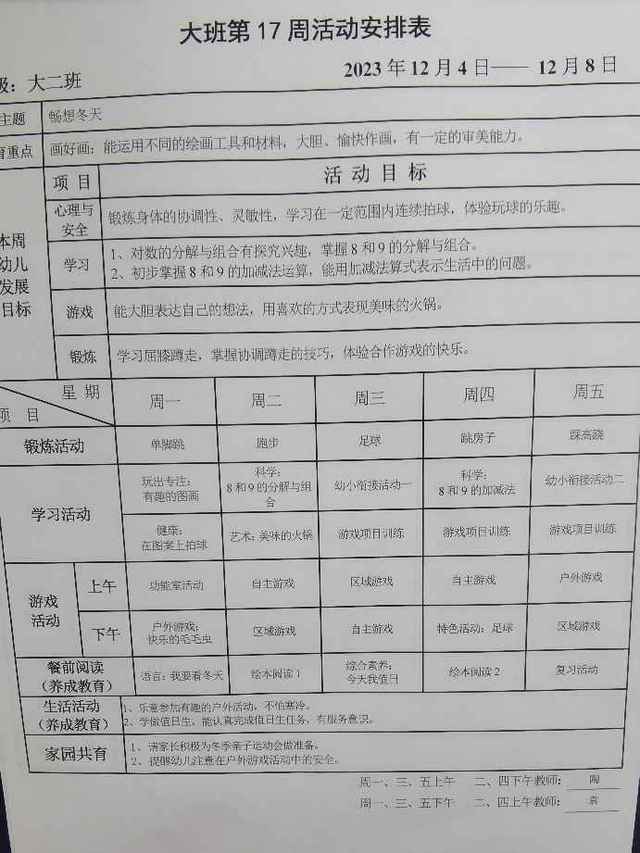 大班第 17 周活动安排表
级：大二班
2023 年 12 月 4 日—— 12 月 8 日
主题 畅想冬天
育重点 画好画：能运用不同的绘画工具和材料，大胆、愉快作画，有一定的审美能力。
本周幼儿发展目标
项 目 活 动 目 标
心理与安全 锻炼身体的协调性、灵敏性，学习在一定范围内连续拍球，体验玩球的乐趣。
学习 1、对数的分解与组合有探究兴趣，掌握 8 和 9 的分解与组合。
2、初步掌握 8 和 9 的加减法运算，能用加减法算式表示生活中的问题。
游戏 能大胆表达自己的想法，用喜欢的方式表现美味的火锅。
锻炼 学习屈膝蹲走，掌握协调蹲走的技巧，体验合作游戏的快乐。
星 期
项 目
周一 周二 周三 周四 周五
锻炼活动 单脚跳 跑步 足球 跳房子 踩高跷
学习活动
玩出专注：有趣的图画 科学：8 和 9 的分解与组合 幼小衔接活动一 科学：8 和 9 的加减法 幼小衔接活动二
健康：在图案上拍球 艺术：美味的火锅 游戏项目训练 游戏项目训练 游戏项目训练
游戏活动
上午 功能室活动 自主游戏 区域游戏 自主游戏 户外游戏
下午 户外游戏：快乐的毛毛虫 区域游戏 自主游戏 特色活动：足球 区域游戏
餐前阅读（养成教育） 语言：我要看冬天 绘本阅读 1 综合素养：今天我值日 绘本阅读 2 复习活动
生活活动（养成教育） 1、乐意参加有趣的户外活动，不怕寒冷。
2、学做值日生，能认真完成值日生任务，有服务意识。
家园共育 1、请家长积极为冬季亲子运动会做准备。
2、提醒幼儿注意在户外游戏活动中的安全。
周一、三、五上午 二、四下午教师： 陶
周一、三、五下午 二、四上午教师： 袁